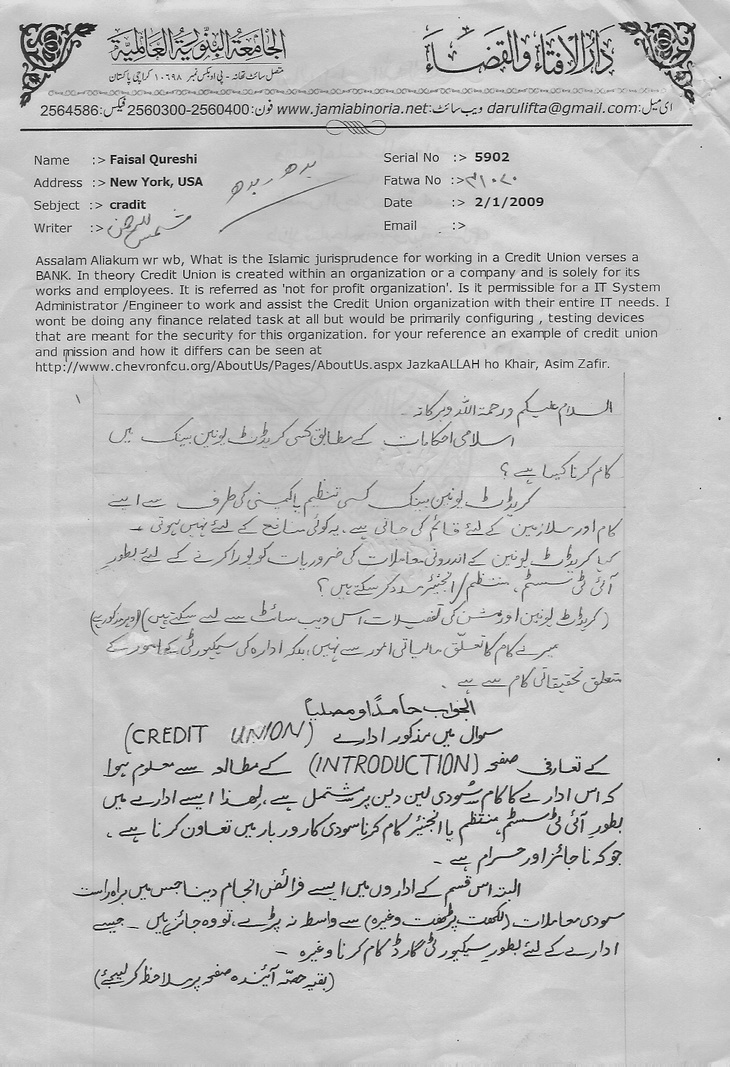 دار الافتاء والقضاء
الجامعة البنورية العالمية
متصل سائٹ تھانہ - پی او بکس نمبر ۱۰۶۹۸ کراچی پاکستان
ای میل: darulifta@gmail.com ویب سائٹ: www.jamiabinoria.net فون: 2560300-2560400 فیکس: 2564586
Name :> Faisal Qureshi
Serial No :> 5902
Address :> New York, USA
Fatwa No :>
Sebject :> cradit
Date :> 2/1/2009
Writer :> شمس الرحمن
Email :>
Assalam Aliakum wr wb, What is the Islamic jurisprudence for working in a Credit Union verses a
BANK. In theory Credit Union is created within an organization or a company and is solely for its
works and employees. It is referred as 'not for profit organization'. Is it permissible for a IT System
Administrator /Engineer to work and assist the Credit Union organization with their entire IT needs. I
wont be doing any finance related task at all but would be primarily configuring , testing devices
that are meant for the security for this organization. for your reference an example of credit union
and mission and how it differs can be seen at
http://www.chevronfcu.org/AboutUs/Pages/AboutUs.aspx JazkaALLAH ho Khair, Asim Zafir.
۱
السلام علیکم ورحمۃ اللہ وبرکاتہ -
اسلامی احکامات کے مطابق کسی کریڈٹ یونین بینک میں
کام کرنا کیسا ہے ؟
کریڈٹ یونین بینک کسی تنظیم یا کمپنی کی طرف سے اپنے
کام اور ملازمین کے لئے قائم کی جاتی ہے ، یہ کوئی منافع کے لئے نہیں ہوتی -
کیا کریڈٹ یونین کے اندرونی معاملات کی ضروریات کو پورا کرنے کے لئے بطور
آئی ٹی سسٹم ، منتظم / انجنیئر مدد کر سکتے ہیں ؟
(کریڈٹ یونین اور مشن کی تفصیلات اس ویب سائٹ سے لے سکتے ہیں)
میرے کام کا تعلق مالیاتی امور سے نہیں بلکہ ادارہ کی سیکیورٹی کے امور کے
متعلق تحقیقاتی کام سے ہے -
الجواب حامداً ومصلیاً
سوال میں مذکور ادارے (CREDIT UNION)
کے تعارفی صفحہ (INTRODUCTION) کے مطالعہ سے معلوم ہوا
کہ اس ادارے کا کام سُودی لین دین پر مشتمل ہے، لہٰذا ایسے ادارے میں
بطور آئی ٹی سسٹم، منتظم یا انجنیئر کام کرنا سودی کاروبار میں تعاون کرنا ہے ،
جو کہ ناجائز اور حرام ہے -
البتہ اس قسم کے اداروں میں ایسے فرائض انجام دینا جس میں براہ راست
سودی معاملات (لکھت پڑھت وغیرہ) سے واسطہ نہ پڑے، تو وہ جائز ہیں - جیسے
ادارے کے لئے بطور سیکیورٹی گارڈ کام کرنا وغیرہ -
(بقیہ حصّہ آئیندہ صفحہ پر ملاحظہ کر لیجئے)